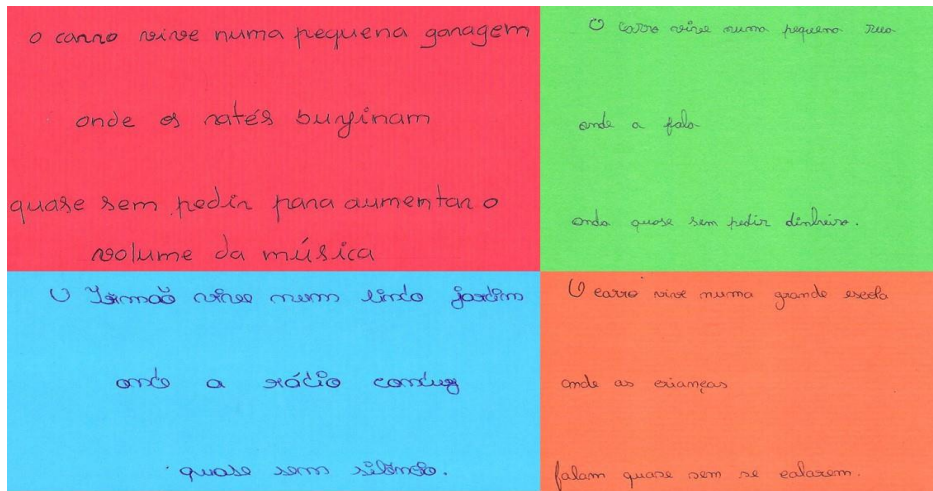 o carro vive numa pequena garagem
onde os ratés buzinam
quase sem pedir para aumentar o
volume da música
O carro vive numa pequena rua
onde a fala
onda quase sem pedir dinheiro.
O Irmão vive num lindo jardim
onde a rádio conduz
quase sem silêncio.
O carro vive numa grande escola
onde as crianças
falam quase sem se calarem.